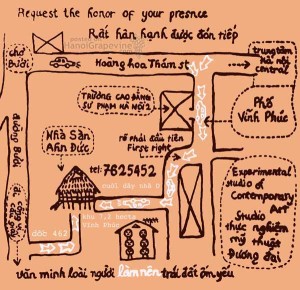 Request the honor of your presnce
Rất hân hạnh được đón tiếp
HanoiGrapevine
chợ
Bưởi
Hoàng hoa Thám st
trung tâm
Hà nội
central
TRƯỜNG CAO ĐẲNG
SƯ PHẠM HÀ NỘI 2
Phố
Vĩnh Phúc
đường Bưởi
Nhà Sàn
Anh Đức
rẽ phải đầu tiên
First right
tel: 7625452
cuối dãy nhà D
khu 7,2 hecta
Vĩnh Phúc
dốc 462
Experimental
studio of
Contemporary
Art
Studio
thực nghiệm
mỹ thuật
Đương đại
văn minh loài người làm nên trái đất ốm yếu